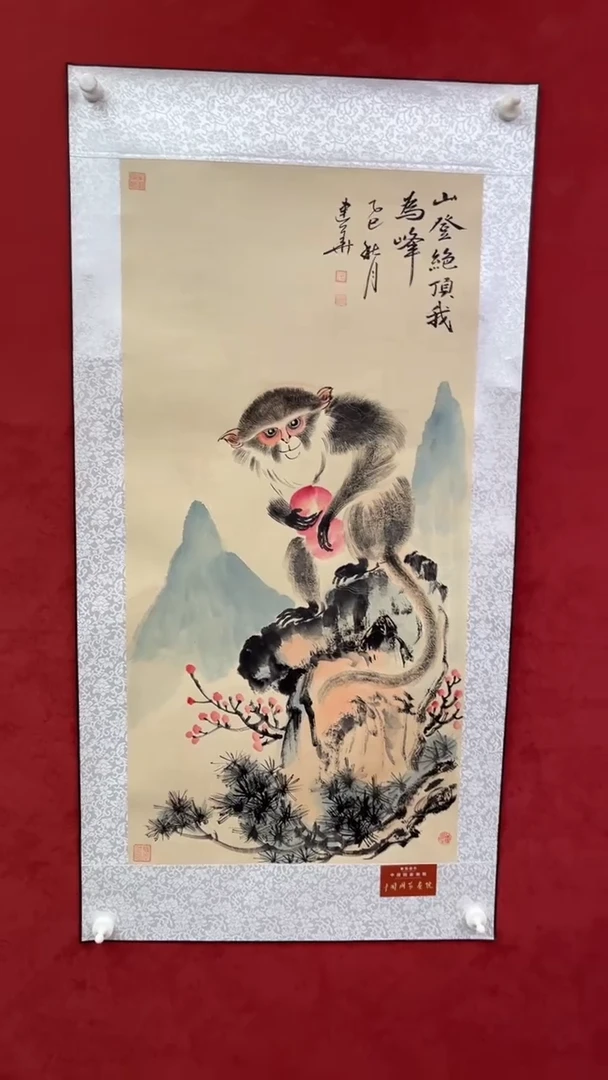 山登絶頂我
為峰
乙巳秋月
建華
中国国家画院